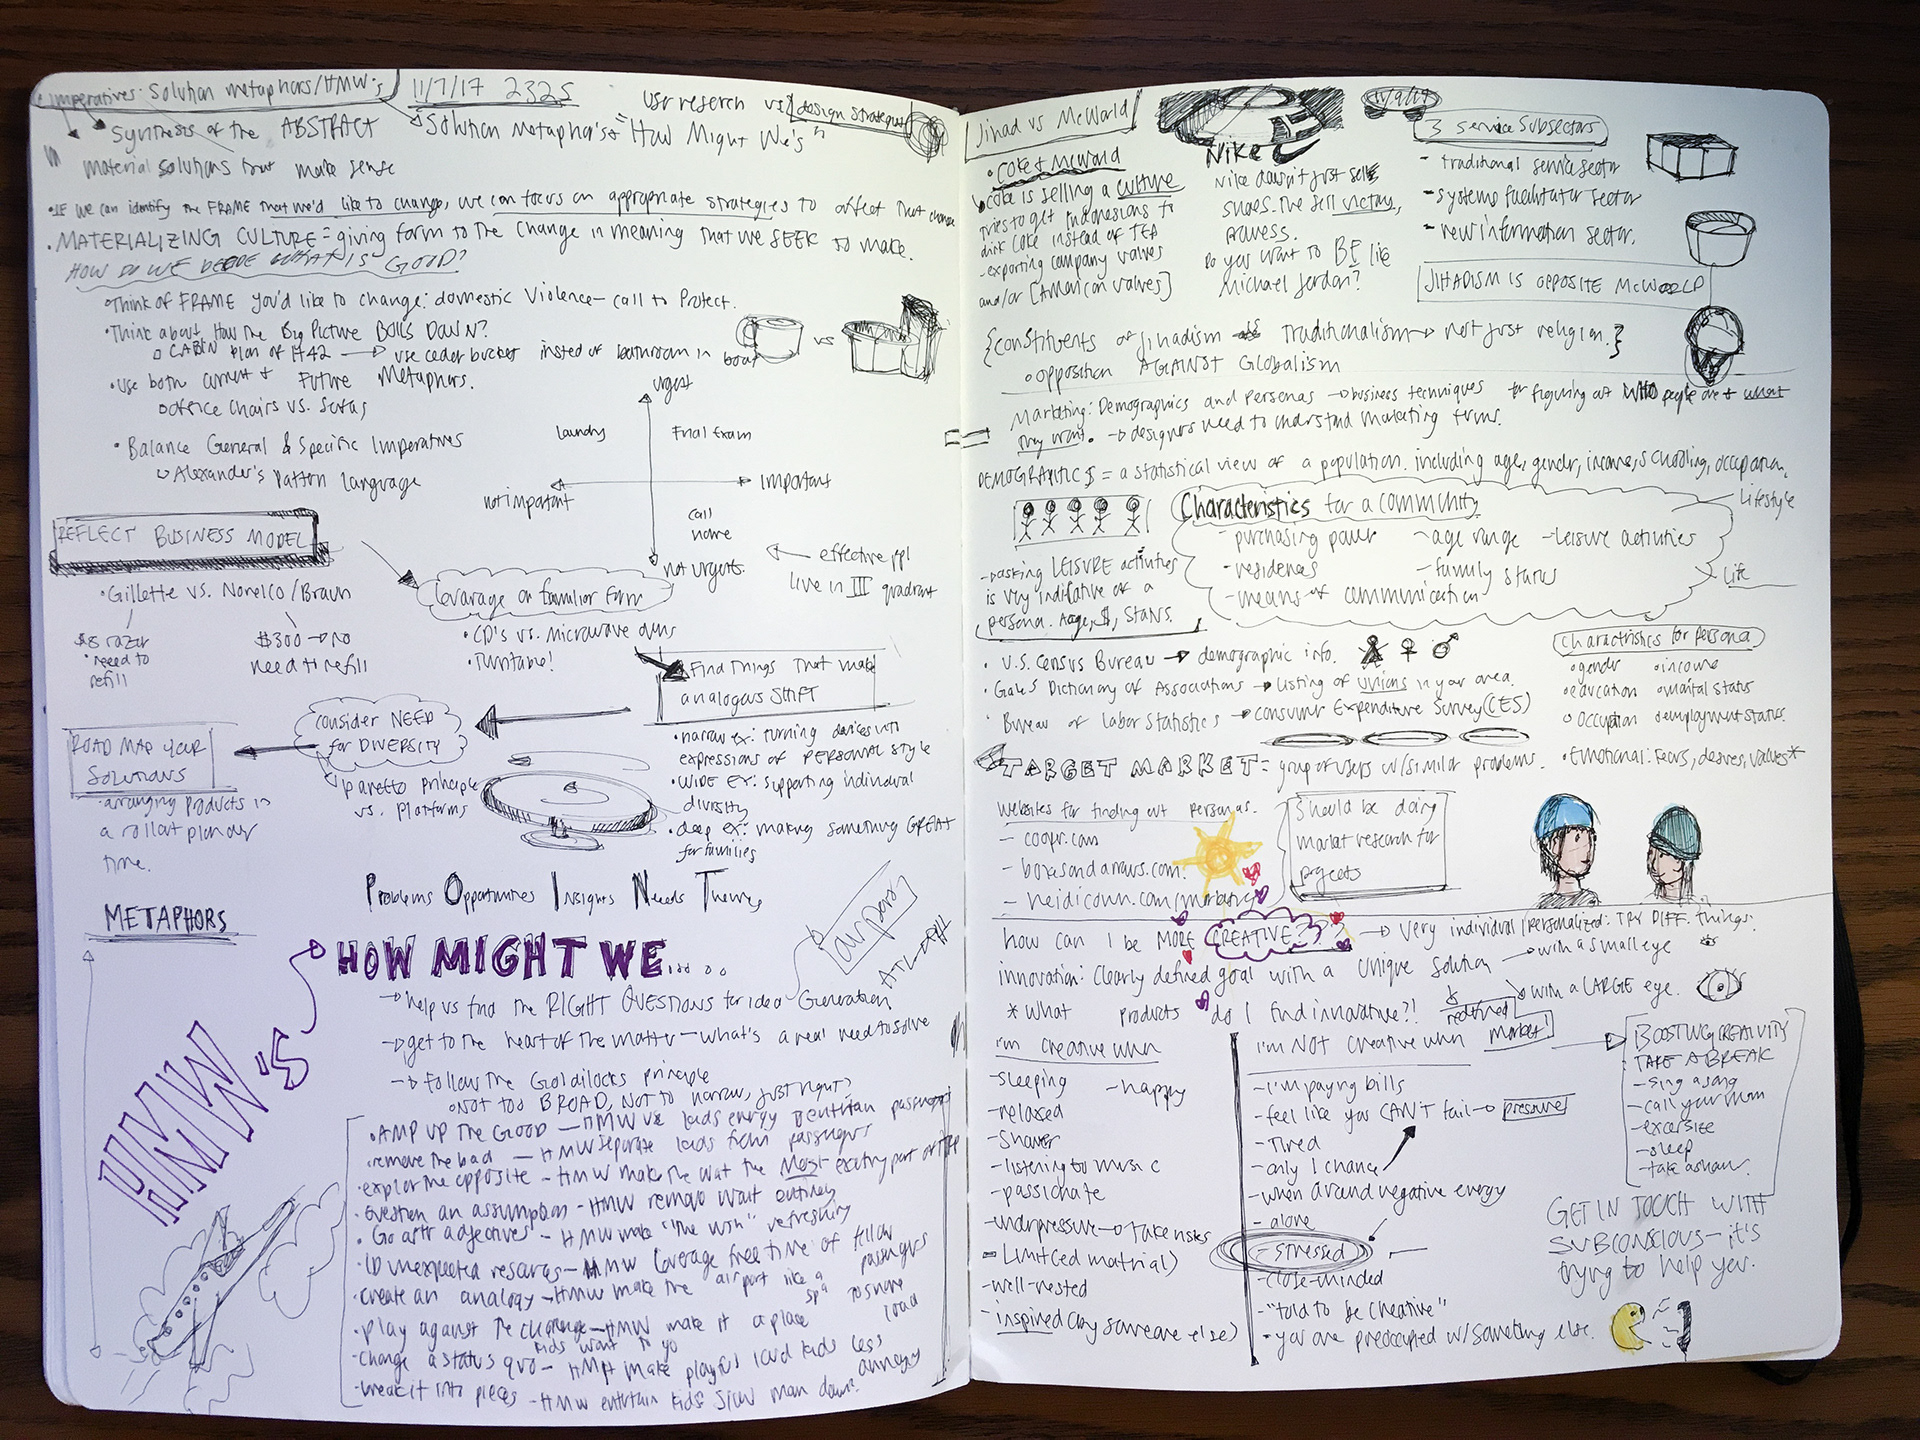 imperatives: Solution metaphors/HMW's
11/7/17 2325
user reserch vs design strategist
Synthesis of the ABSTRACT
Solution Metaphors + "How Might We's"
material solutions that make sense
• IF we can identify the FRAME that we'd like to change, we can focus on appropriate strategies to affect that change
• MATERIALIZING CULTURE = giving form to the change in meaning that we SEEK to make.
HOW DO WE DECIDE WHAT IS GOOD?
• Think of FRAME you'd like to change: domestic Violence - call to Protect.
• Think about How the Big Picture BOILS DOWN?
CABIN plan of H42 → use ceder bucket instead of bathroom in boat
vs
• Use both current + Future Metaphors.
office Chairs vs. Sofas
• Balance General & Specific Imperatives
Alexander's Pattern Language
urgent
laundry
Final Exam
not important
important
call
home
not urgent
effective ppl
live in III quadrant
REFLECT BUSINESS MODEL
• Gillette vs. Norelco/Braun
$8 razor
• need to
refill
$300 → no
need to refill
leverage on familiar form
• CD's vs. microwave
• Turntable!
Find Things That make
analogous SHIFT
• narrow ex: turning devices into
expressions of PERSONAL STYLE
• WIDE EX: supporting individual
diversity
• deep ex: making something GREAT
for families
consider NEED
for DIVERSITY
paretto principle
vs. Platforms
ROAD MAP YOUR
SOLUTIONS
• arranging products in
a rollout plan over
time.
Problems Opportunities Insights Needs Themes
METAPHORS
HOW MIGHT WE.....
airport
HMW'S
→ help us find the RIGHT QUESTIONS for idea Generation
→ get to the heart of the matter - what's a real need to solve
→ Follow the Goldilocks principle
NOT too BROAD, NOT to narrow, just right
• AMP UP THE GOOD - HMW use kids energy passengers
remove the bad - HMW separate kids from passengers
explore the opposite - HMW make the wait the most exciting part of
• Question an assumption - HMW remove wait entirely
• Go after adjectives - HMW make "the wish" refreshing
• ID unexpected resources - HMW leverage free time of fellow passengers to share load
• create an analogy - HMW make the airport like a spa
• play against the challenge - HMW make it a place
kids want to go
• change a status quo - HMW make playful loud kids less annoying
• break it into pieces - HMW entertain kids? Slow man down?
Jihad vs McWorld
11/9/17
3 Service Subsectors
• COKE + McWorld
Coke is selling a culture
tries to get Indonesians to
drink coke instead of TEA
- exporting company values
and/or [American values]
Nike
Nike doesn't just sell
shoes. The sell victory,
Do you want to BE like
Michael Jordan?
- traditional service sector
- systems facilitator sector
- new information sector.
JIHADISM IS OPPOSITE McWORLD
{constituents of jihadism Traditionalism → not just religion.}
o opposition AGAINST Globalism
Marketing: Demographics and personas → business techniques for figuring out WHO people are + what
they want. → designers need to understand marketing terms.
DEMOGRAPHICS = a statistical view of a population. including age, gender, income, schooling, occupation,
Lifestyle
Characteristics for a community
- purchasing power
- age range
- leisure activities
- residences
- family status
- means of communication
Life
- asking LEISURE activities
is very indicative of a
persona. Age, $, Status.
• U.S. Census Bureau → demographic info.
• Gales Dictionary of Associations → listing of unions in your area.
• Bureau of Labor Statistics → consumer Expenditure Survey (CES)
Characteristics for Persona
• gender
• income
• education
• marital status
o occupation
o employment status.
• Emotional: Fears, desires, values*
TARGET MARKET = group of users w/ similar problems.
Websites for finding out personas.
- coopr.com
- boxesandarrows.com
Should be doing
market research for
projects
how can I be MORE CREATIVE???
→ very individual/personalized: TRY DIFF. things.
innovation: Clearly defined goal with a unique solution
→ with a small eye
→ with a LARGE eye.
* What products do I find innovative?!
redefined
market!
I'm creative when
- sleeping
- happy
- relaxed
- shower
- listening to music
- passionate
- under pressure → take risks
- LIMITed material)
- well-rested
- inspired (by someone else)
I'm NOT creative when
- I'm paying bills
- feel like you CAN'T fail → pressure
- Tired
- only 1 chance
- when around negative energy
- alone
- stressed
- close-minded
- "told to be creative"
- you are preoccupied w/ something else.
BOOSTING CREATIVITY
TAKE A BREAK
- sing a song
- call your mom
- excersize
- sleep
- take a shower.
GET IN TOUCH WITH
SUBCONSCIOUS - it's
trying to help you.